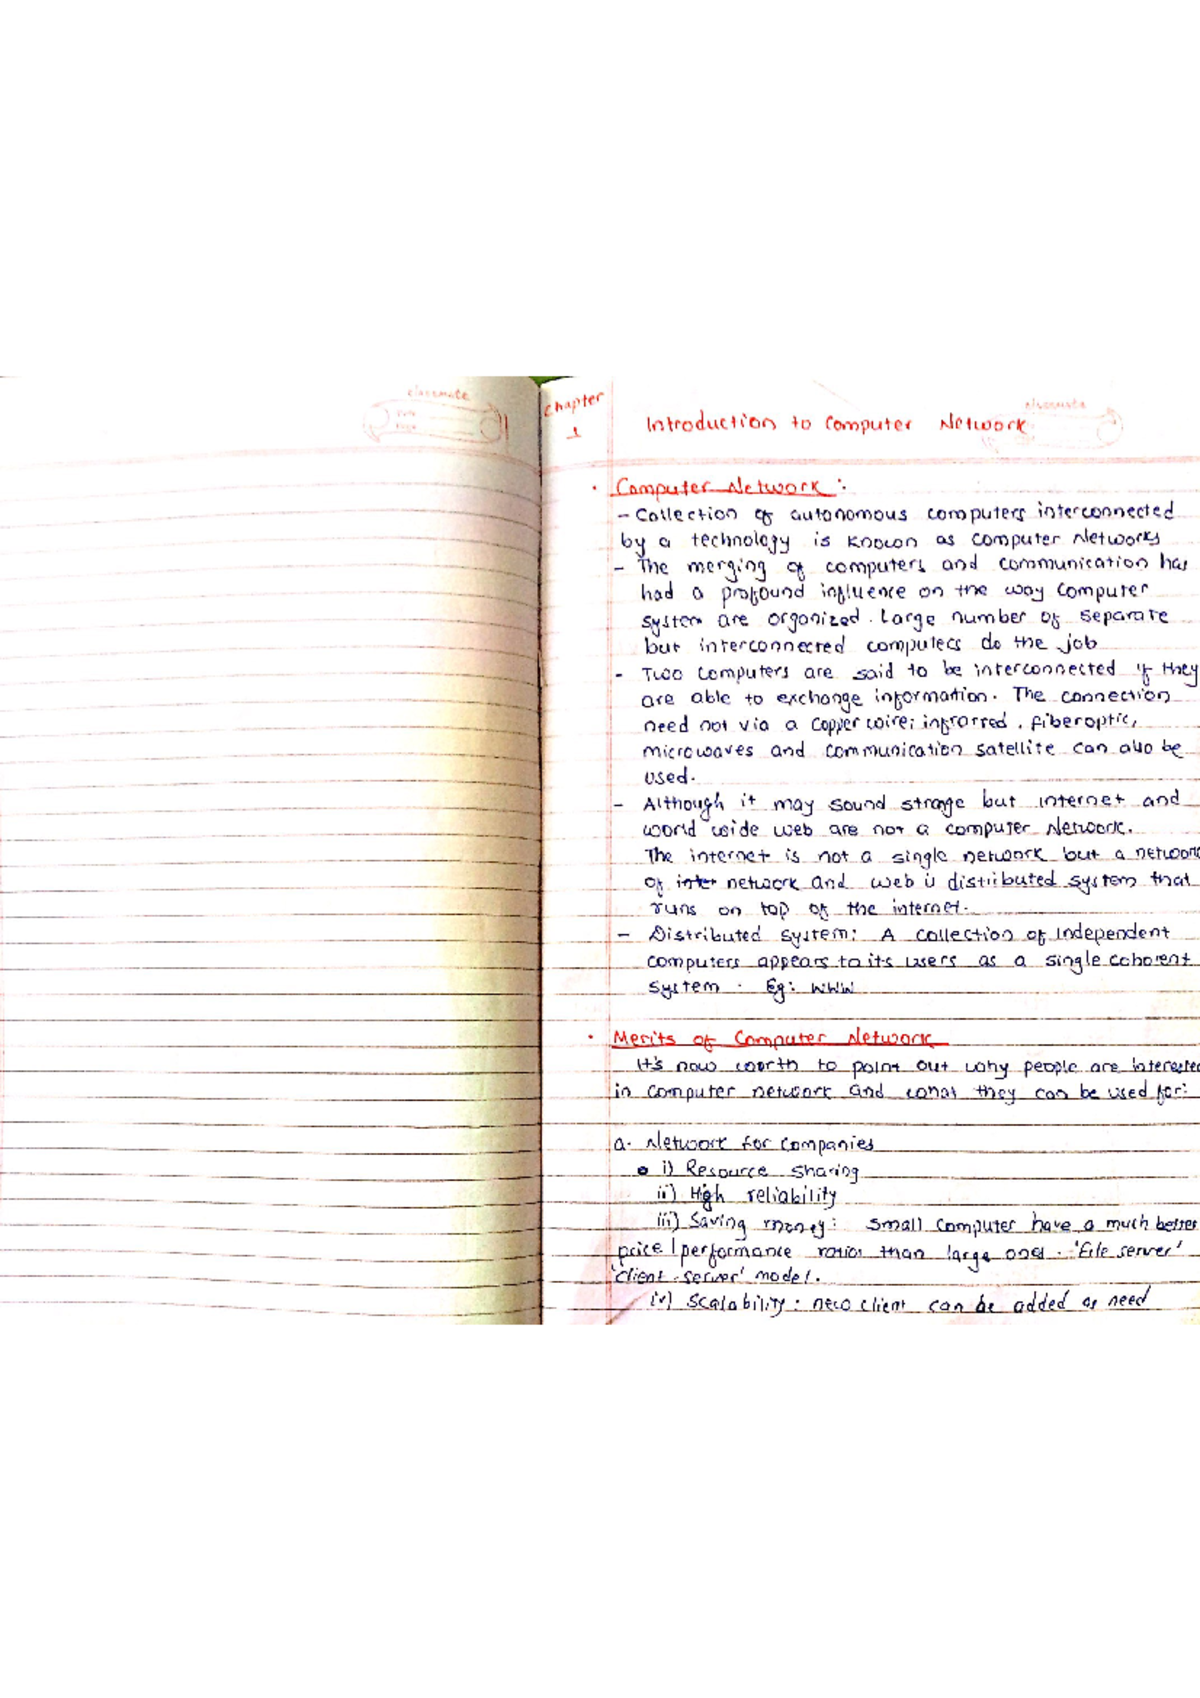 classmate
Date
Page
Chapter
1
classmate
Introduction to Computer Network
· Computer Network :
- Collection of autonomous computers interconnected
by a technology is known as computer Networks
- The merging of computers and communication has
had a profound influence on the way computer
system are organized. Large number of separate
but interconnected computers do the job
- Two computers are said to be interconnected if they
are able to exchange information. The connection
need not via a copper wire; infrarred, fiberoptic,
microwaves and communication satellite can also be
used.
- Although it may sound strange but internet and
world wide web are not a computer Network.
The internet is not a single network but a network
of inter network and web is distributed system that
runs on top of the internet.
- Distributed system: A collection of independent
computers appears to its users as a single coherent
system. Eg: WWW
· Merits of Computer Network
It's now worth to point out why people are interested
in computer network and what they can be used for:
a. Network for companies
i) Resource sharing
ii) High reliability
iii) Saving money: small computer have a much better
price/performance ratios than large ones. 'File server'
'client-server' model.
iv) Scalability: new client can be added as need